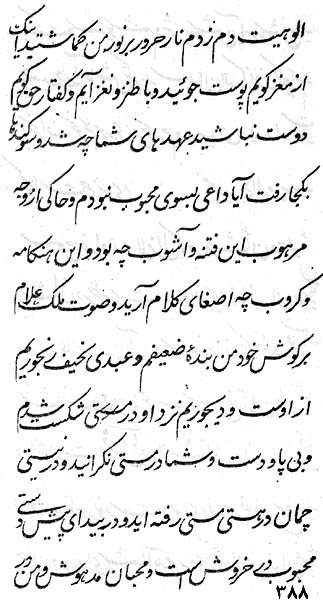 الوهیت دم زدم نار حرور بر نور من گماشتید اینک
از مغز گویم پوست جوئید و با طنز و نغز آیم و گفتار حق گویم
دوست نباشید عهدهای شما چه شد و سوگندها
بکجا رفت آیا داعی بسوی محبوب نبودم و حاکی از وجه
مرهوب این فتنه و آشوب چه بود و این هنگامه
و کروب چه اصغای کلام آرید و صوت ملک علام
بر گوش خود من بندهٔ ضعیفم و عبدی نحیف رنجوریم
از اوست و دیجوریم نزد او در مستی شکست شدم
و بی پا و دست و شما در مستی نگرانید و در نیستی
چمان در هستی مستی رفته اید و در بیدای پیش و پستی
محبوب در خروش است و محبان مدهوش و من در
۳۸۸